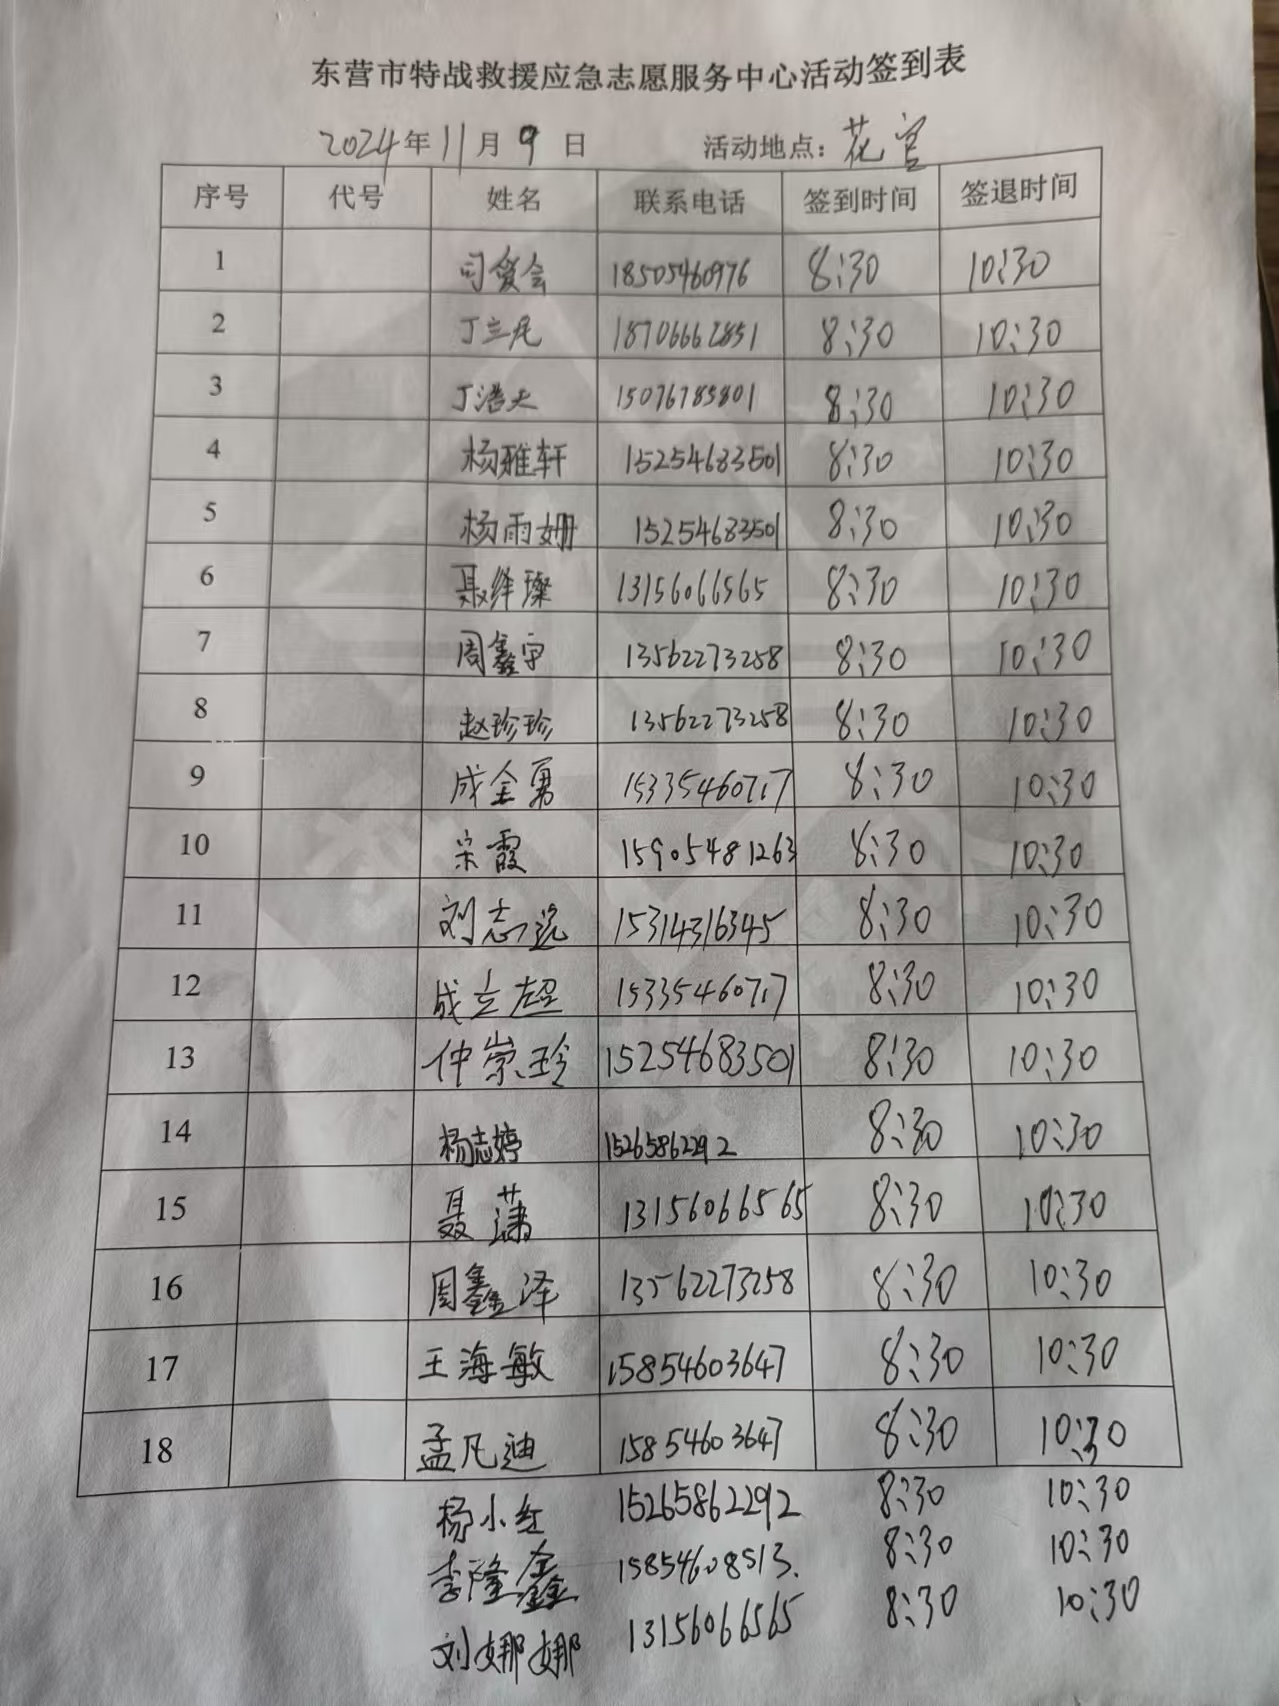 东营市特战救援应急志愿服务中心活动签到表
2024年11月9日 活动地点：花官
序号 代号 姓名 联系电话 签到时间 签退时间
1 司爱会 18505460976 8:30 10:30
2 丁兰凡 18706662851 8:30 10:30
3 丁浩天 15076783801 8:30 10:30
4 杨雅轩 15254683501 8:30 10:30
5 杨雨姗 15254683501 8:30 10:30
6 聂绎璨 13156066565 8:30 10:30
7 周鑫宇 13562273258 8:30 10:30
8 赵珍珍 13562273258 8:30 10:30
9 成金勇 15335460717 8:30 10:30
10 宋霞 15905481263 8:30 10:30
11 刘志远 15314316345 8:30 10:30
12 成立超 15335460717 8:30 10:30
13 仲崇玲 15254683501 8:30 10:30
14 杨志婷 15265862292 8:30 10:30
15 聂潇 13156066565 8:30 10:30
16 周鑫泽 13562273258 8:30 10:30
17 王海敏 15854603647 8:30 10:30
18 孟凡迪 15854603647 8:30 10:30
杨小红 15265862292 8:30 10:30
李隆鑫 15854608513. 8:30 10:30
刘娜娜 13156066565 8:30 10:30